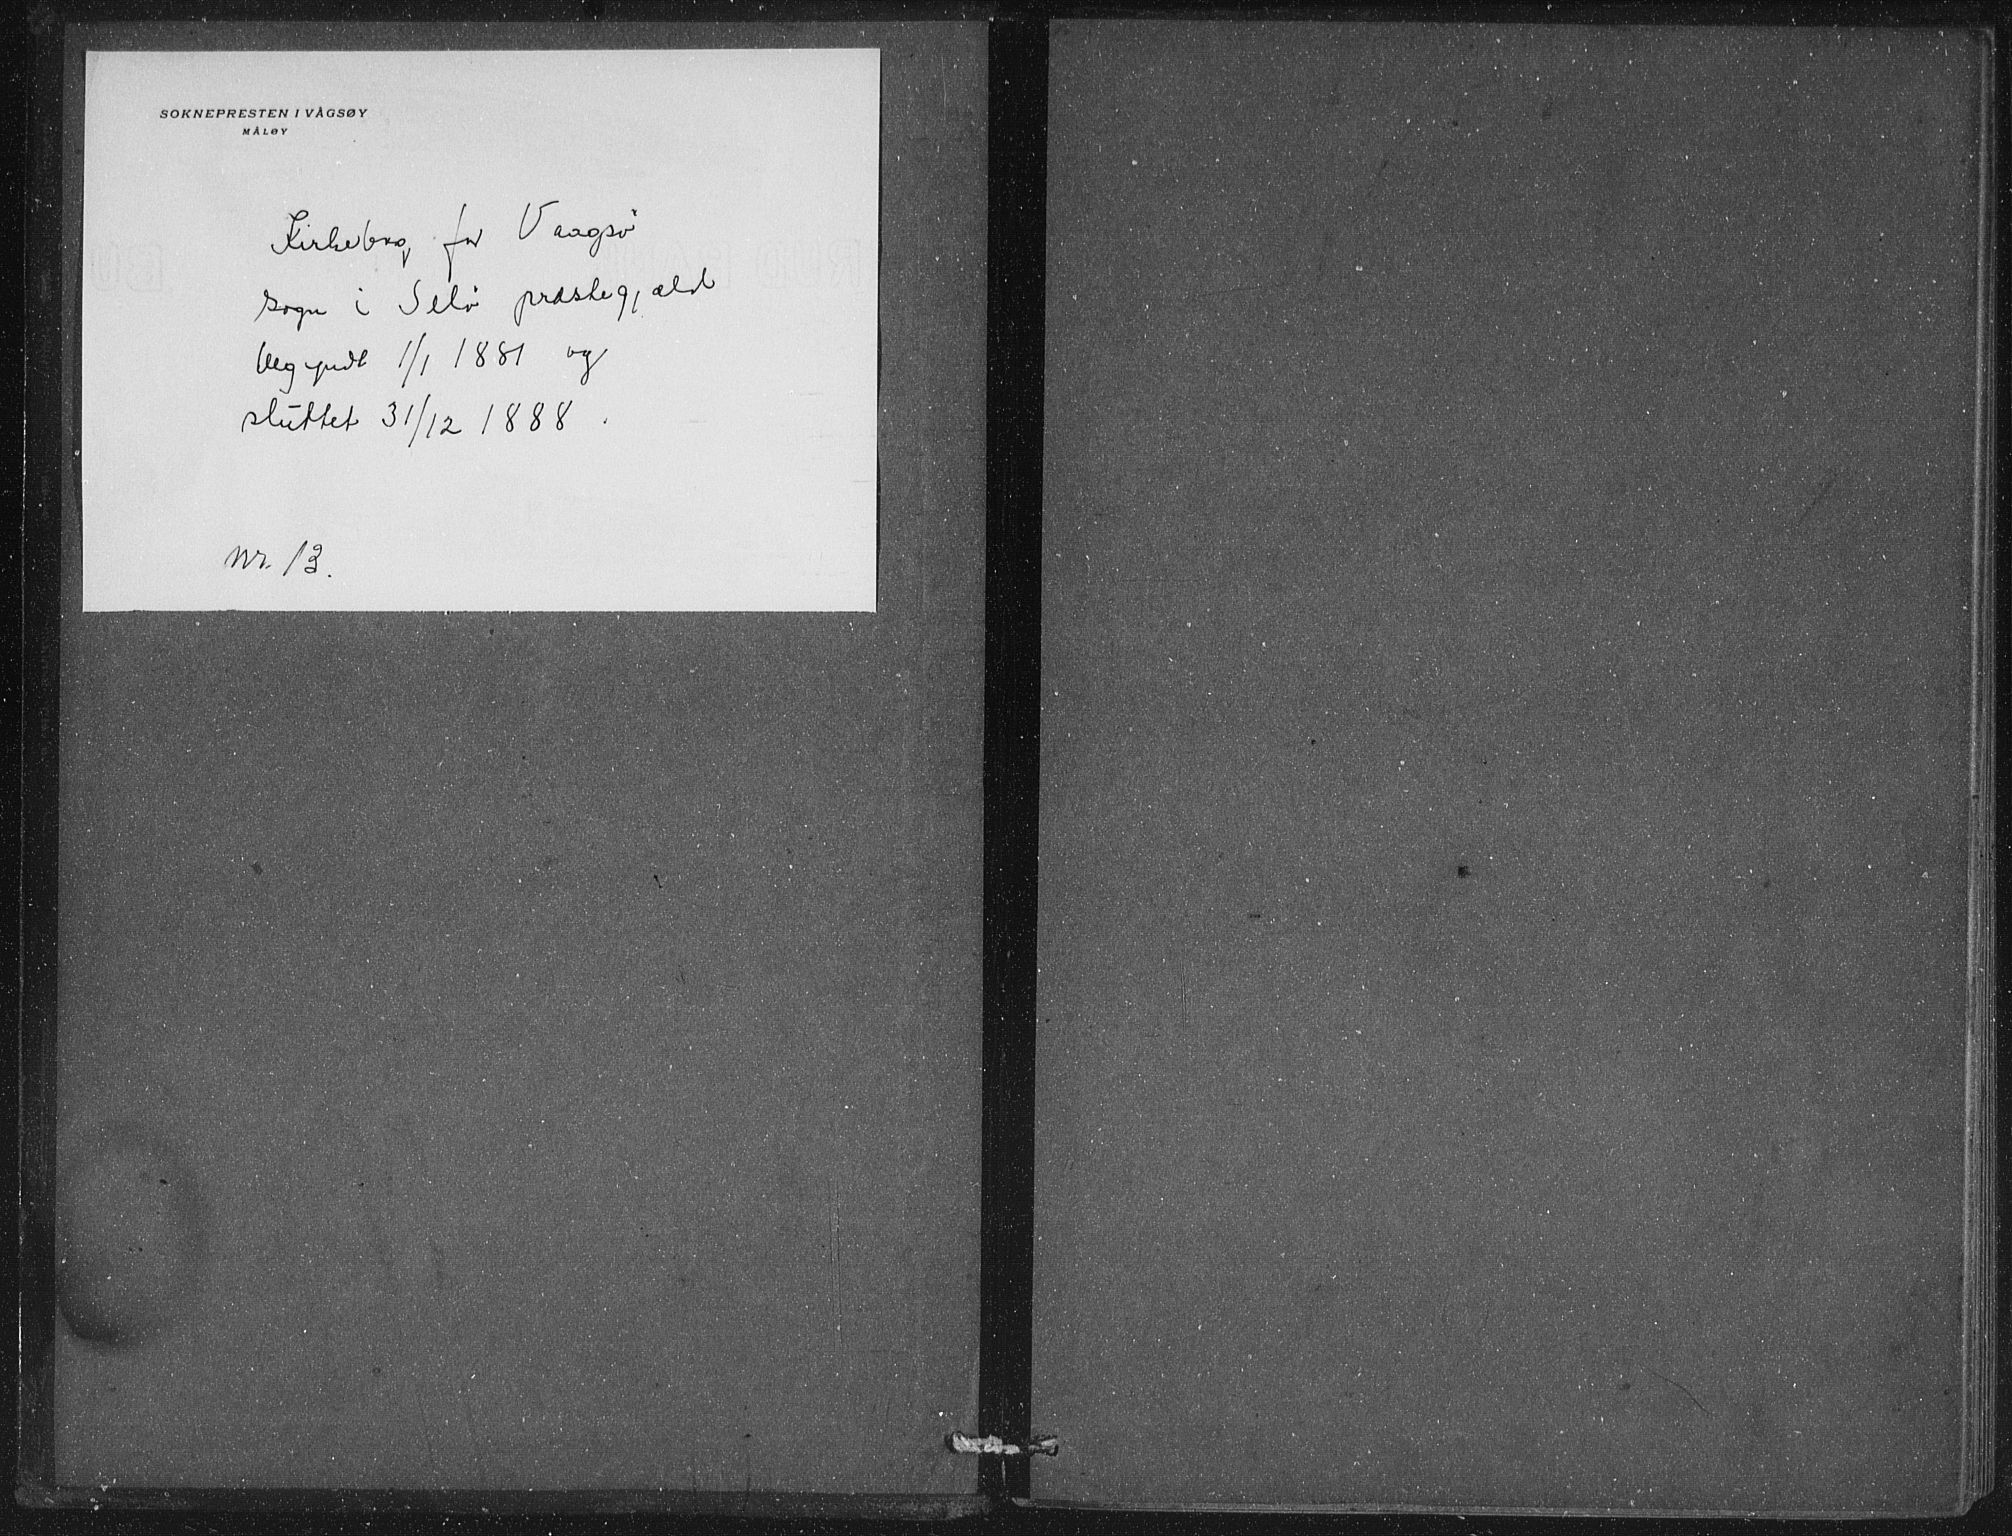 SOKNEPRESTEN I VÅGSØY
MÅLØY
Kirkebog for Vaagsö
sogn i Selö præstegjæld
begyndt 1/1 1881 og
sluttet 31/12 1888.
Nr. 13.